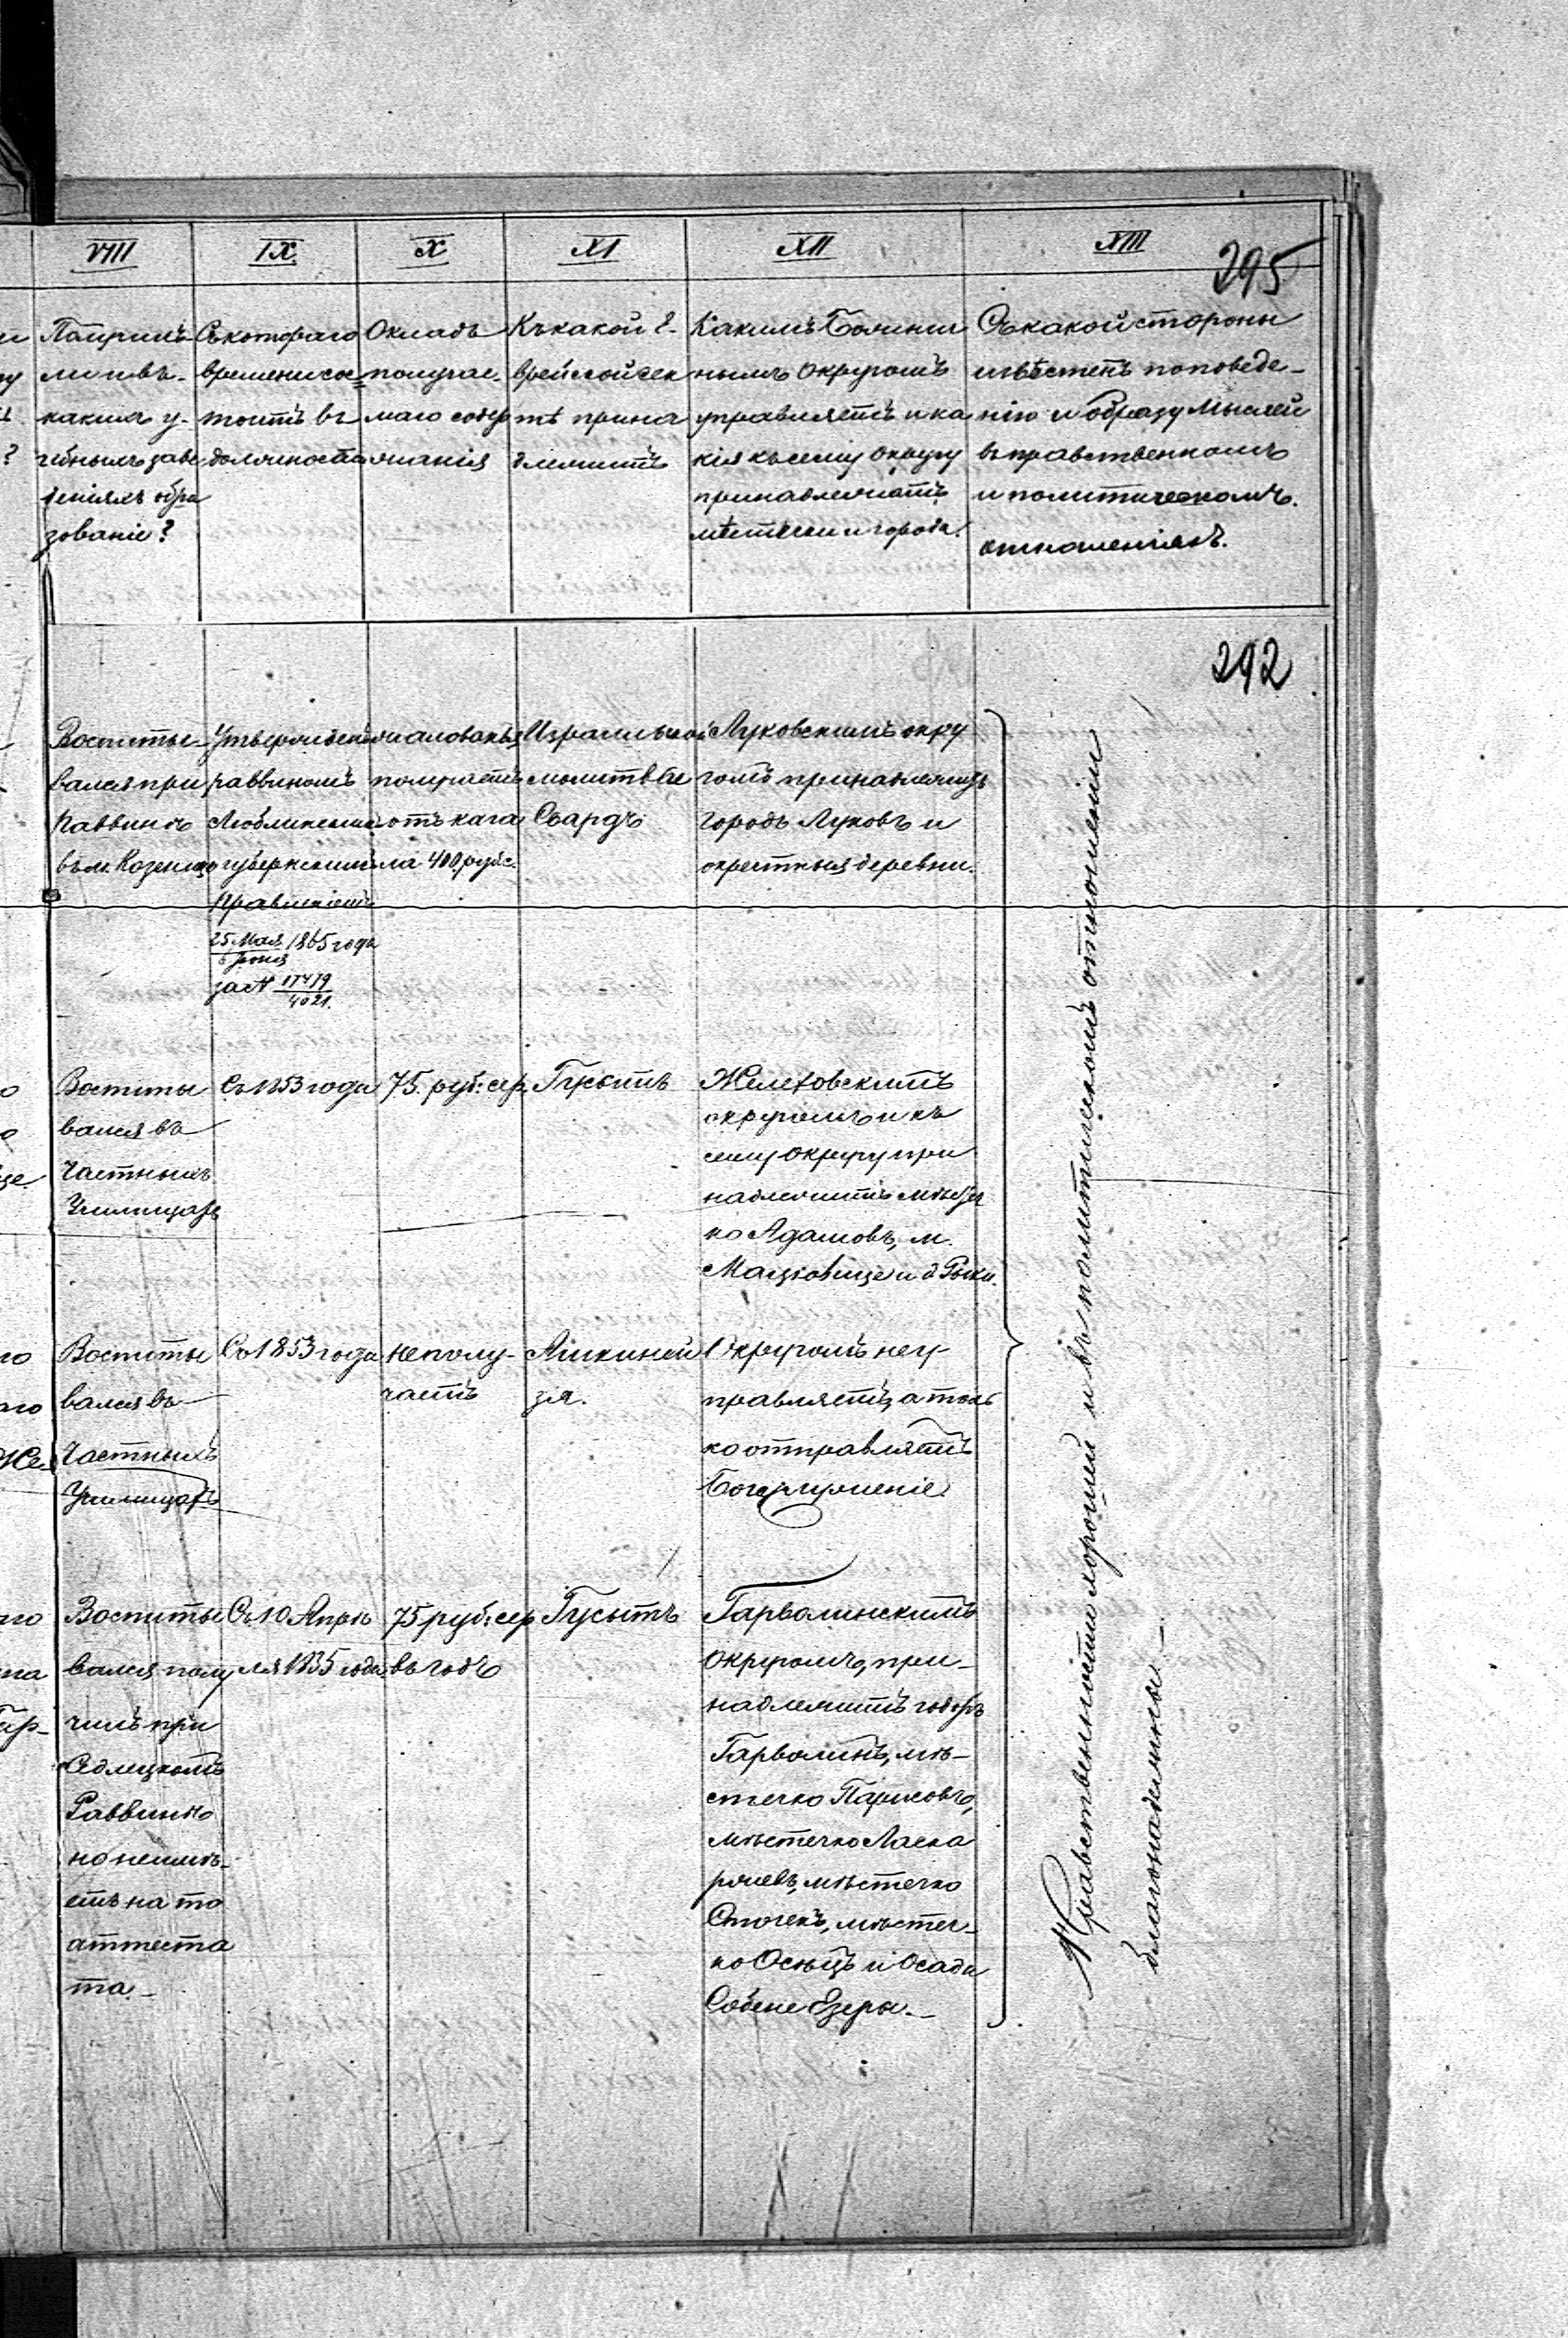 VIII
IX
X
XI
XII
XIII
295
Получилъ
ли и въ
какихъ у-
чебныхъ заве
деніяхъ обра
зованіе?
Съ котораго
времени сос-
тоитъ въ
должности
Окладъ
получае-
маго содер
жанія
Къ какой Е-
врейской сек
тѣ прина
длежитъ
Какимъ Божнич
нымъ округомъ
управляетъ и ка
кія къ сему округу
принадлежатъ
мѣстечки и города?
Съ какой стороны
извѣстенъ по поведе-
нію и образу мыслей
въ нравственномъ
и политическомъ
отношеніяхъ.
292
Воспиты-
вался при
Раввинѣ
въ м. Козеницѣ
Утвержденъ
раввиномъ
Люблинскимъ
губернскимъ
Правленіемъ
25 Мая 1865 года
6 Іюня
за № 17479
4021.
жалованья
получаетъ
отъ кага
ла 400 руб. с.
Израильской
молитвы
Сѣардъ
Луковскимъ окру
гомъ принадлежитъ
городъ Луковъ и
окрестныя деревни.
Воспиты
вался въ
частныхъ
Училищахъ
Съ 1853 года
75. руб. сер.
Гусытъ
Желеховскимъ
округомъ и къ
сему округу при
надлежитъ мѣстеч
ко Адамовъ, м.
Мацѣовице и д. Рыки.
Воспиты
вался въ
Частныхъ
Училищахъ
Съ 1853 года
не полу-
чаетъ
Ашкиной
зя.
Округомъ не у-
правляетъ, а толь
ко отправляетъ
Богослуженіе
Воспиты
вался полу
чилъ при
Сѣдлецкомъ
Раввинѣ
но неимѣ-
етъ на то
аттеста
та.-
Съ 10 Апрѣ
ля 1835 года
75 руб. сер
въ годъ
Гусытъ
Гарволинскимъ
округомъ, при-
надлежитъ городъ
Гарволинъ, мѣ-
стечко Парысовъ,
мѣстечко Ласка
ржевъ, мѣстечко
Сточекъ, мѣстеч-
ко Осѣцкъ и Осада
Собене Езеры.-
Нравственности хорошей и въ политическомъ отношеніи
благонадежны.-